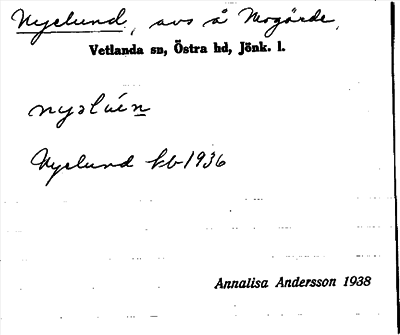 Nyelund, avs å Mogärde,
Vetlanda sn, Östra hd, Jönk. l.
nyəlún
Nyelund kb 1936
Annalisa Andersson 1938